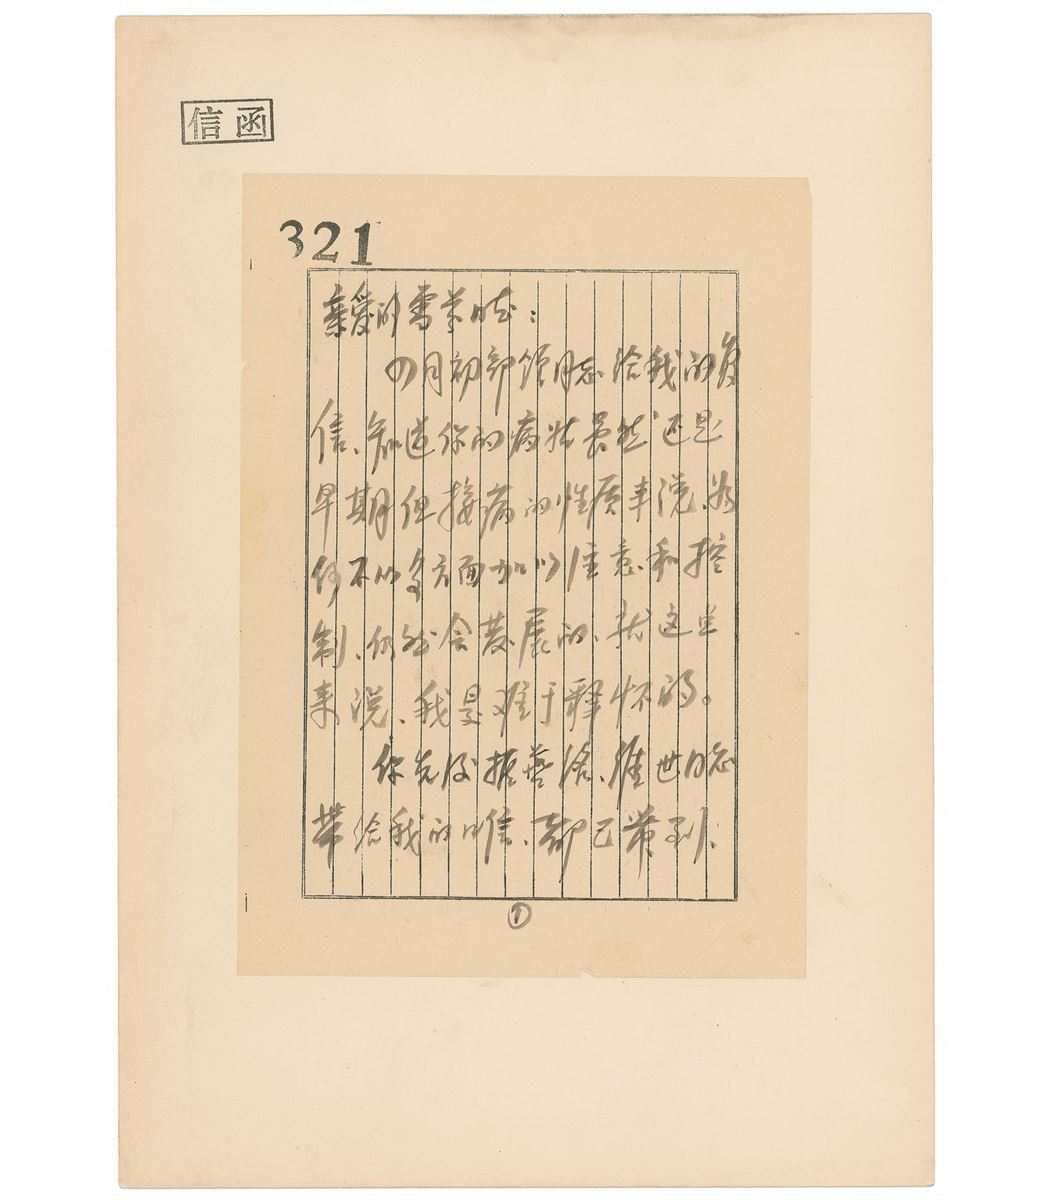 信函
321
亲爱的雪芬同志：
四月初部领同志给我的复
信、知道你的病状虽然还是
早期但接病的性质来说、若
何不从多方面加以注意和控
制、仍然会发展的、就这些
来说、我是难于释怀的。
你先后振、维世同志
带给我的信、都已带到、
①